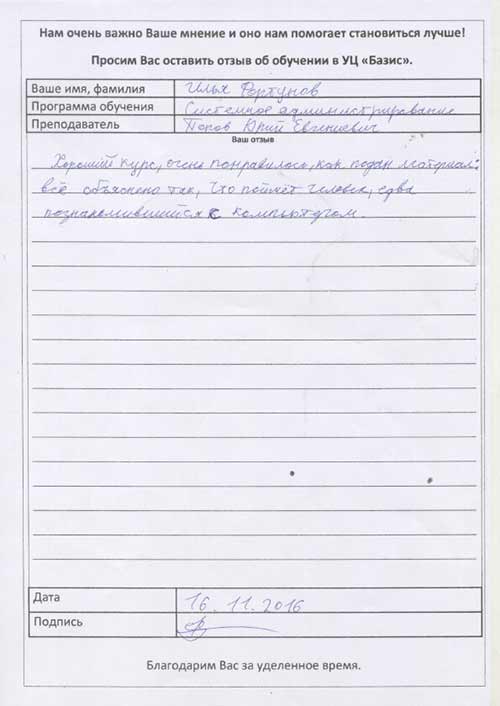 Нам очень важно Ваше мнение и оно нам помогает становиться лучше!
Просим Вас оставить отзыв об обучении в УЦ «Базис».
Ваше имя, фамилия Илья Фортунов
Программа обучения Системное администрирование
Преподаватель Попов Юрий Евгениевич
Ваш отзыв
Хороший курс, очень понравилось, как подан материал:
всё объяснено так, что поймёт человек, едва
познакомившийся с компьютером.
Дата 16.11.2016
Подпись
Благодарим Вас за уделенное время.